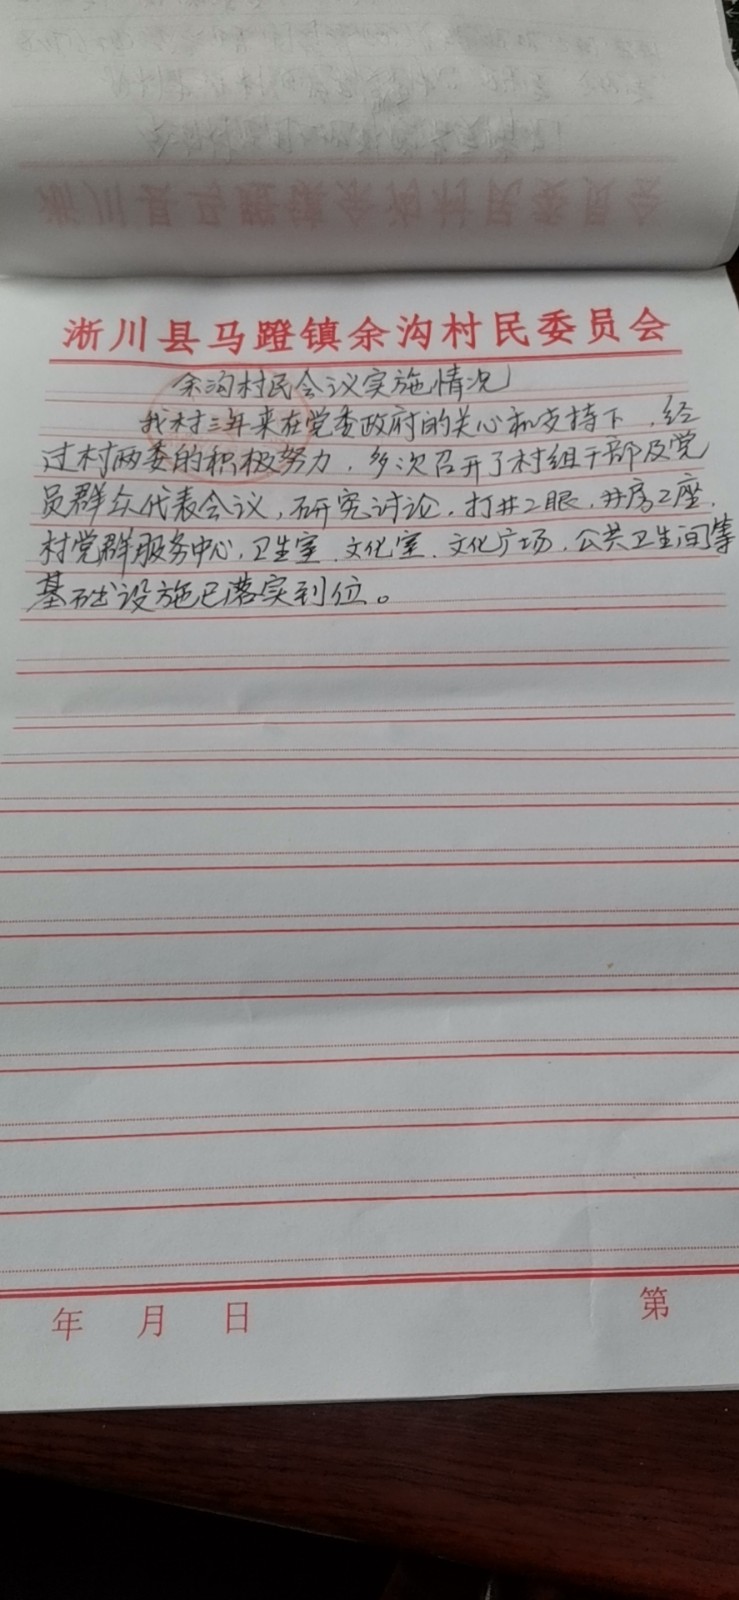 淅川县马蹬镇余沟村民委员会
余沟村民会议实施情况
我村三年来在党委政府的关心和支持下，经
过村两委的积极努力，多次召开了村组干部及党
员群众代表会议，研究讨论，打井2眼，井房2座，
村党群服务中心，卫生室、文化室、文化广场，公共卫生间等
基础设施已落实到位。
年 月 日 第